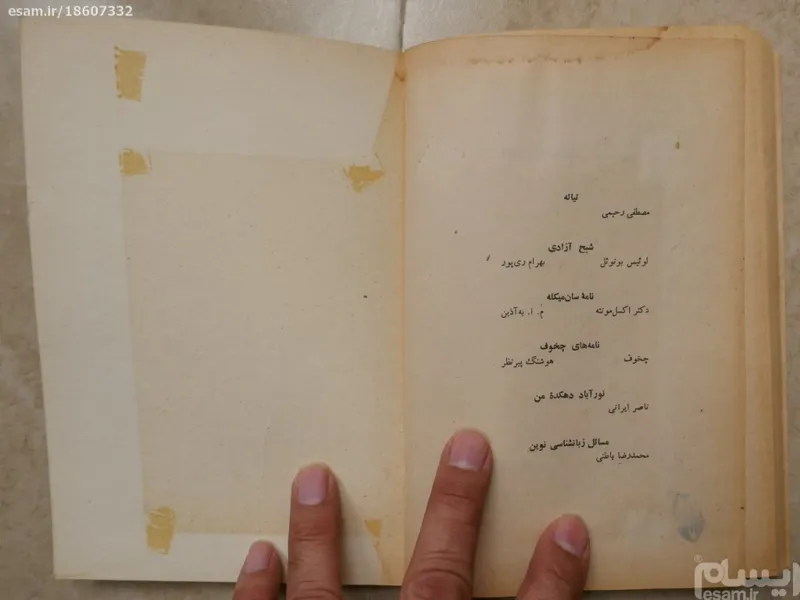 esam.ir/18607332
تیاله
مصطفی رحیمی
شبح آزادی
لوئیس بونوئل بهرام ری‌پور
نامهٔ سان‌میکله
دکتر اکسل‌مونته م. ا. به‌آذین
نامه‌های چخوف
چخوف هوشنگ پیرنظر
نورآباد دهکدهٔ من
ناصر ایرانی
مسائل زبانشناسی نوین
محمدرضا باطنی
ایسام
esam.ir